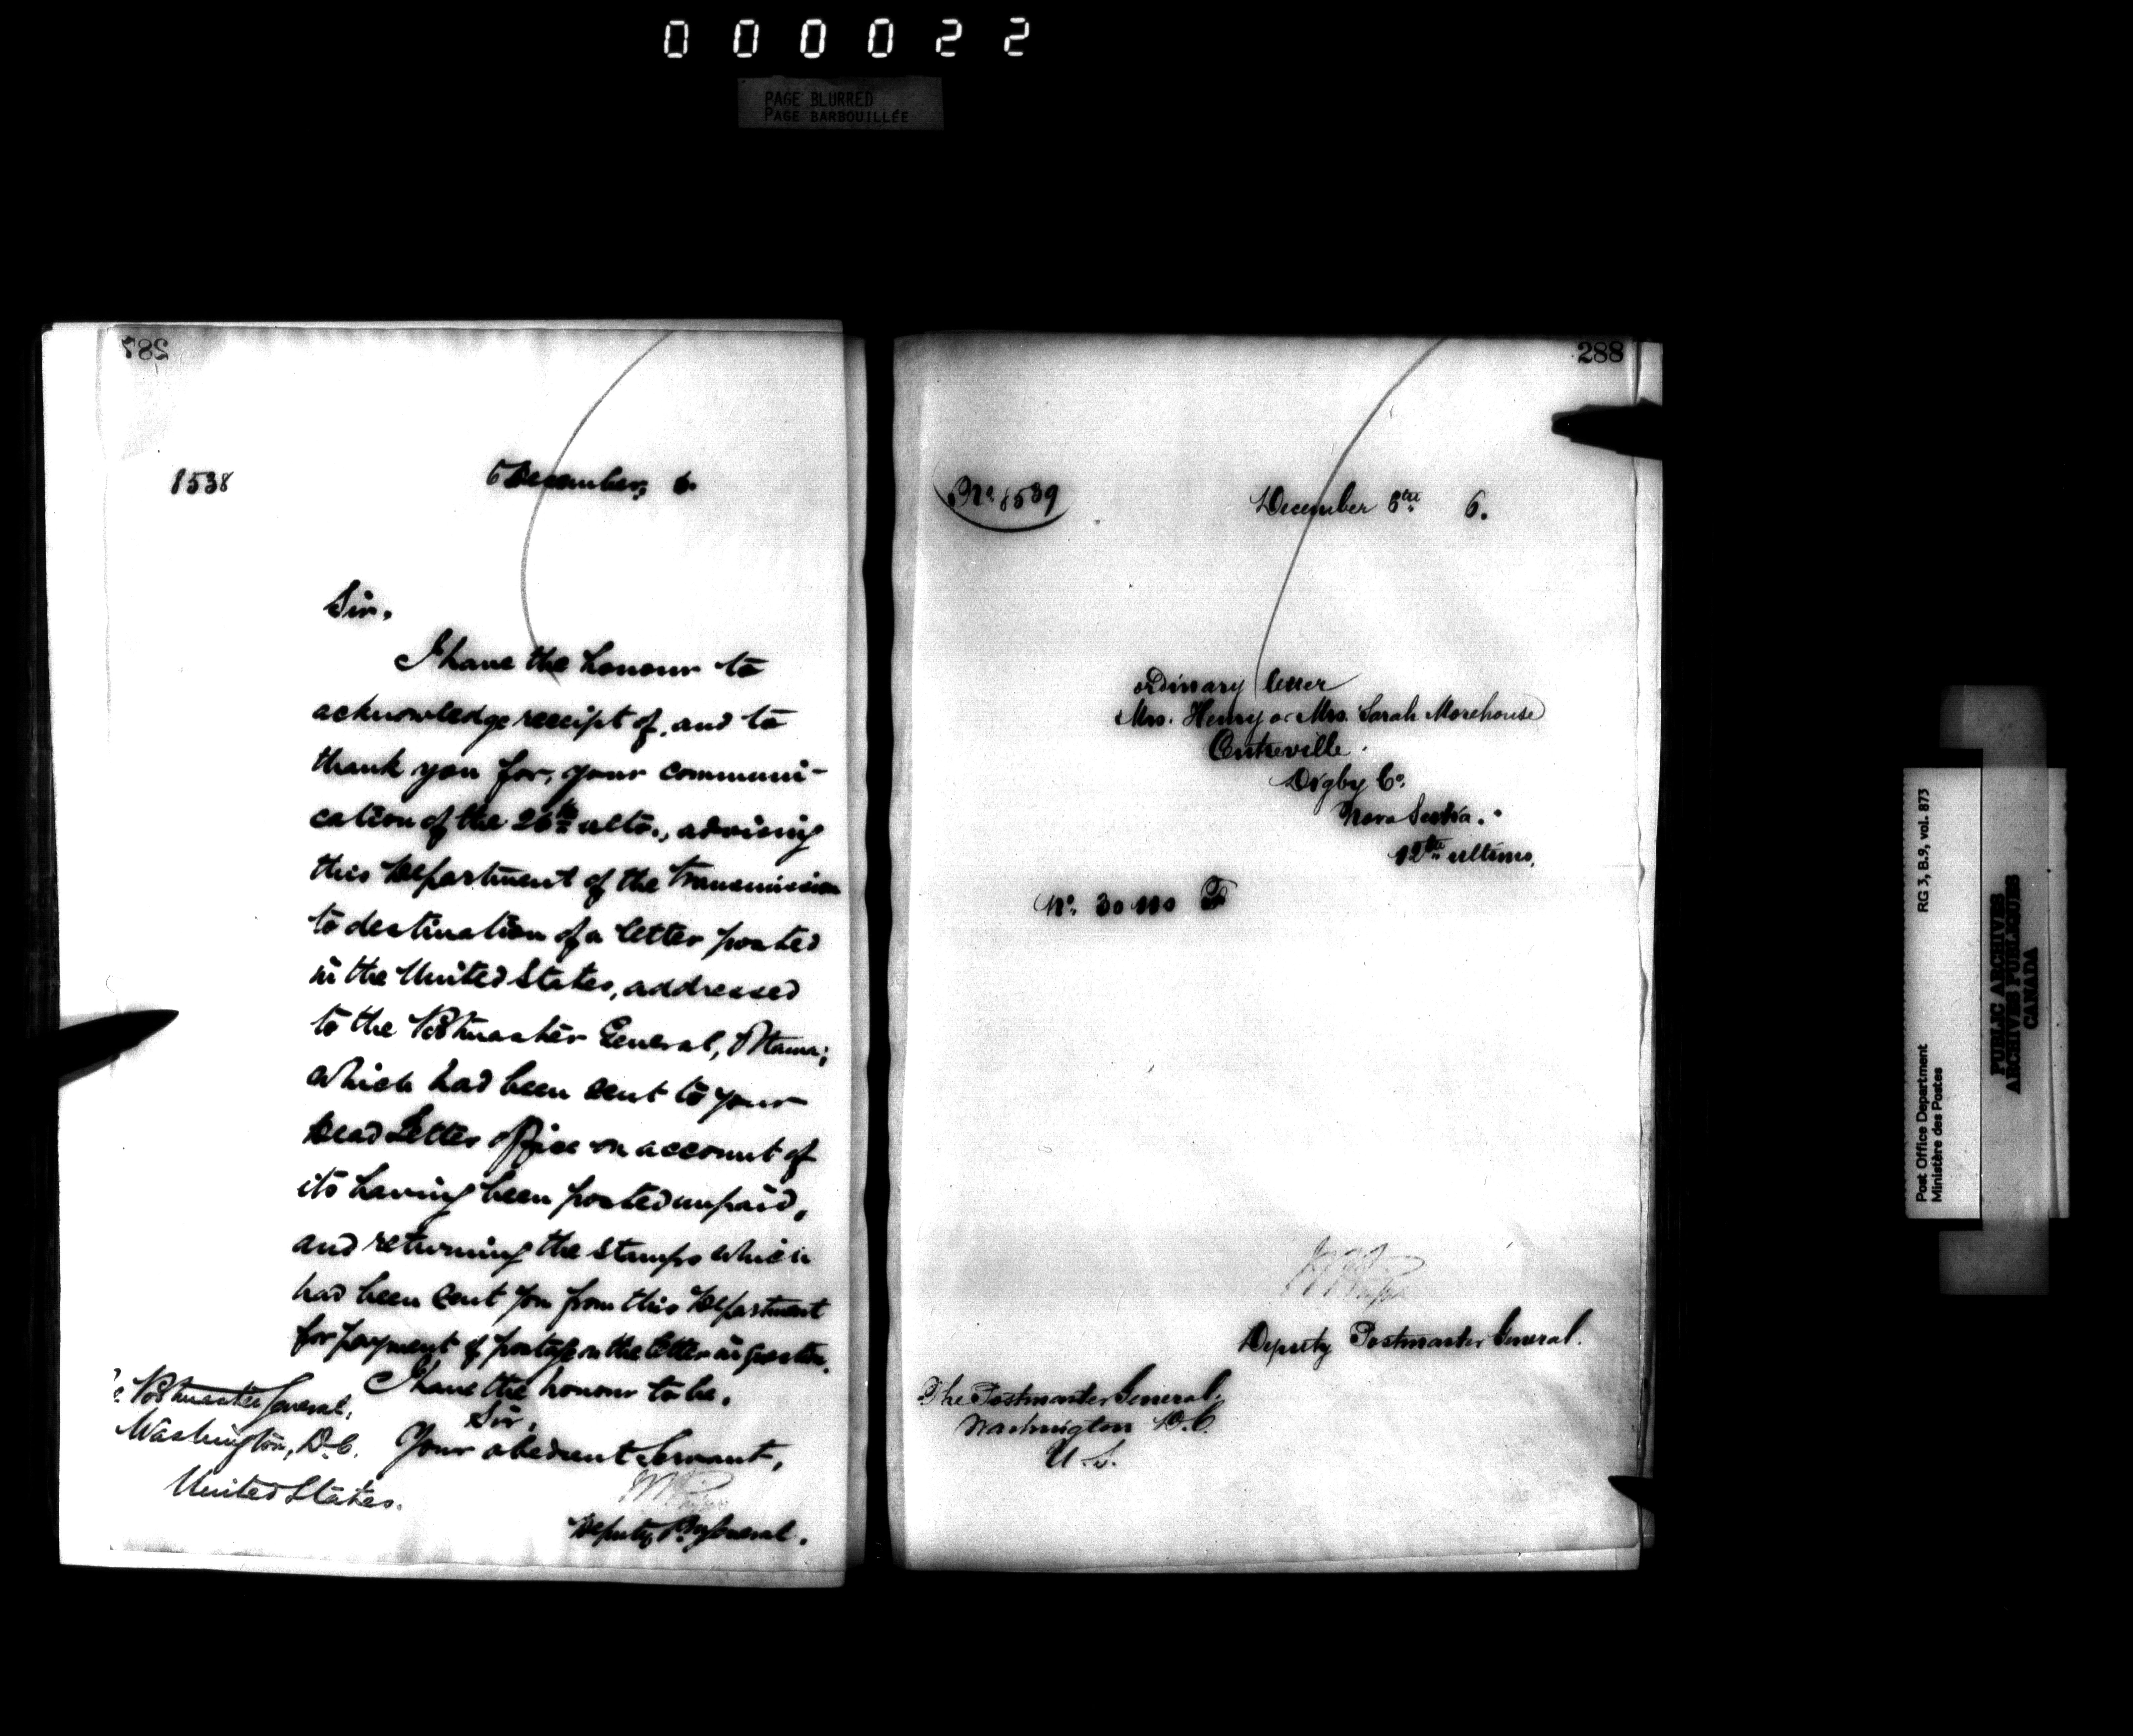 000022
PAGE BLURRED
PAGE BARBOUILLÉE
287
8538
5 December, 6.
Sir,
I have the honour to
acknowledge receipt of, and to
thank you for, your communi-
cation of the 26th ulto., advising
this Department of the transmission
to destination of a letter posted
in the United States, addressed
to the Postmaster General, Ottawa;
which had been sent to your
Dead Letter Office on account of
its having been posted unpaid,
and returning the stamps which
had been sent you from this Department
for payment of postage on the letter in question.
I have the honour to be,
Sir,
Your obedient Servant,
Deputy P. M. General.
Postmaster General,
Washington, D.C.
United States.
288
No. 8539
December 6th 6.
ordinary letter
Mrs. Henry or Mrs. Sarah Morehouse
Centreville.
Digby Co.
Nova Scotia.
12th ultimo.
No. 30110 F
Deputy Postmaster General.
The Postmaster General,
Washington D.C.
U.S.
RG 3, B.9, vol. 873
Post Office Department
Ministère des Postes
PUBLIC ARCHIVES
ARCHIVES PUBLIQUES
CANADA